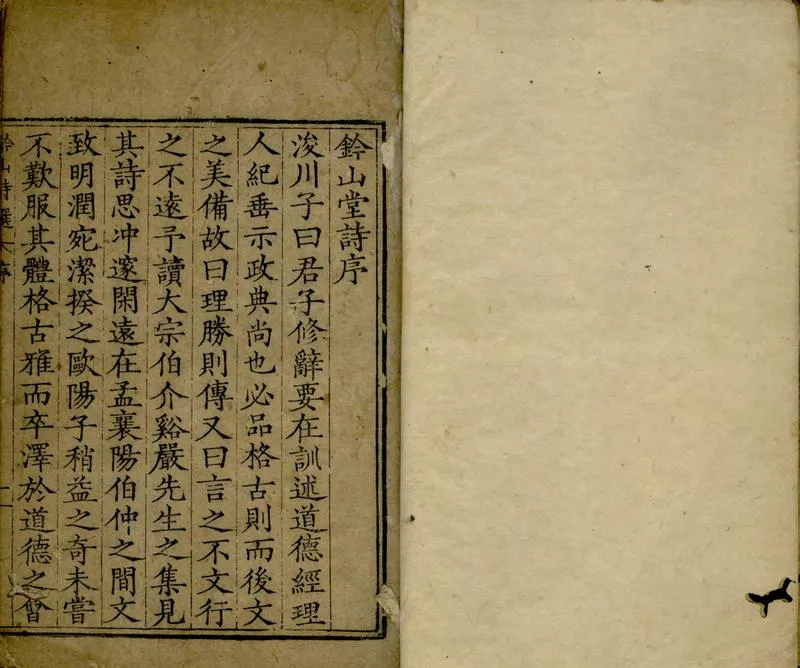 鈐山堂詩序
浚川子曰君子修辭要在訓述道德經理
人紀垂示政典尚也必品格古則而後文
之美備故曰理勝則傳又曰言之不文行
之不遠予讀大宗伯介谿嚴先生之集見
其詩思冲邃閑遠在孟襄陽伯仲之間文
致明潤宛潔揆之歐陽子稍益之奇未嘗
不歎服其體格古雅而卒澤於道德之會
鈐山詩選 序
一